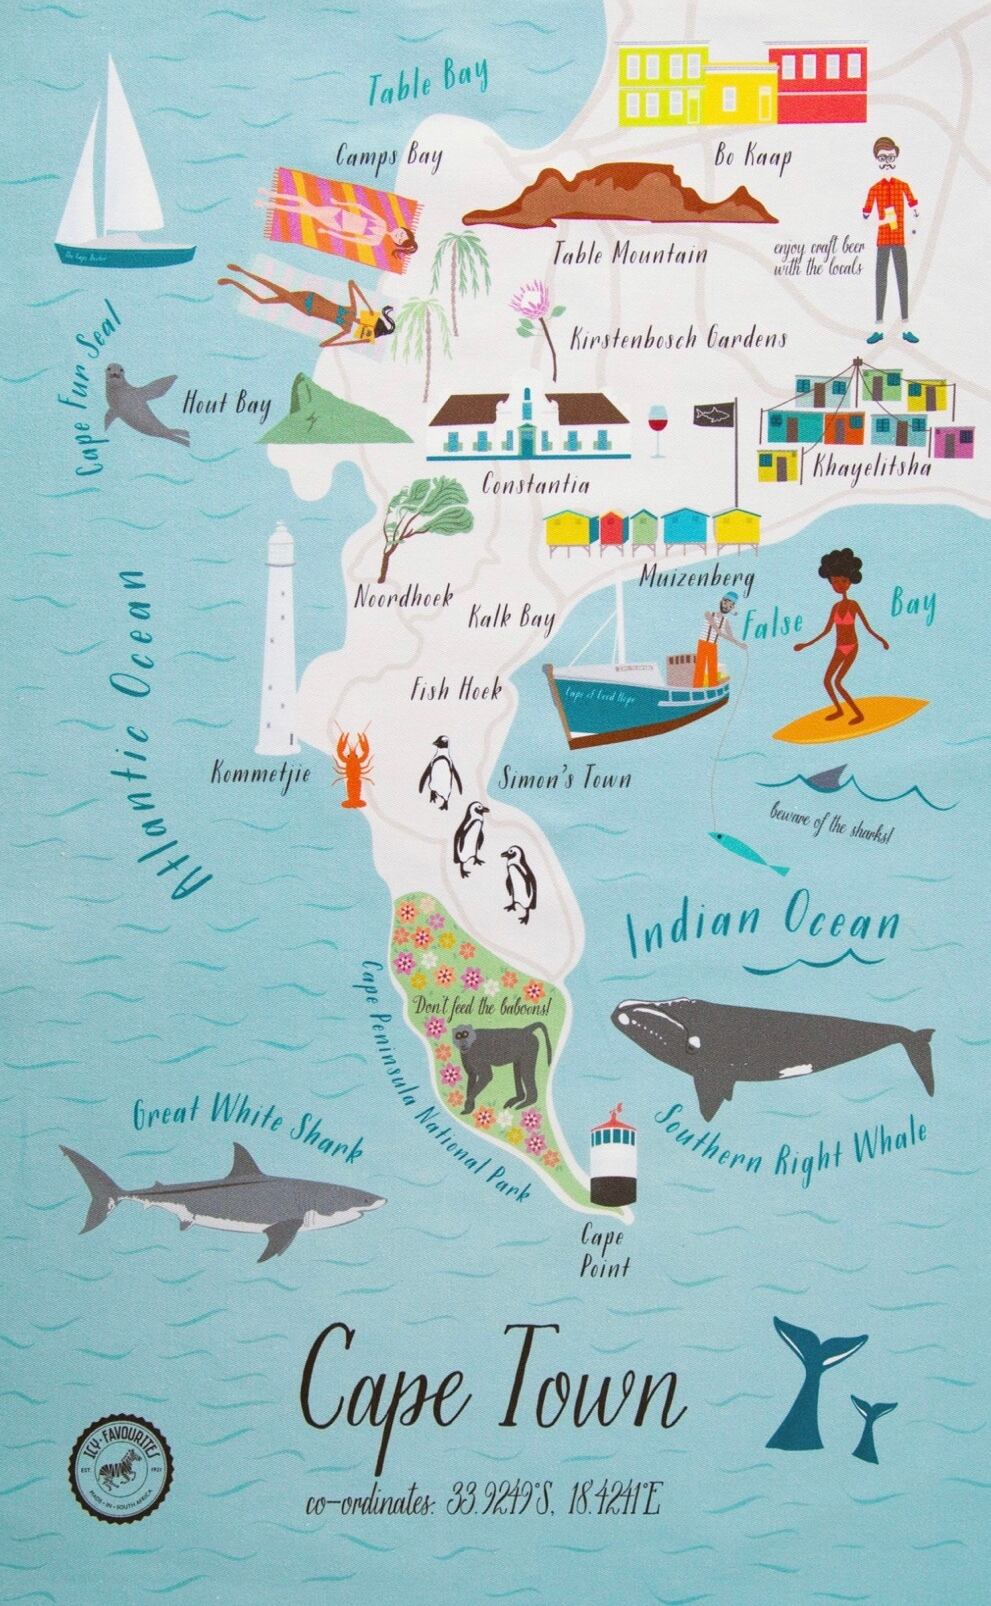 Table Bay
Camps Bay
Bo Kaap
Table Mountain
enjoy craft beer
with the locals
Kirstenbosch Gardens
Cape Fur Seal
Hout Bay
Constantia
Khayelitsha
Muizenberg
Noordhoek
Kalk Bay
False Bay
Cape of Good Hope
Atlantic Ocean
Fish Hoek
Kommetjie
Simon's Town
beware of the sharks!
Indian Ocean
Don't feed the baboons!
Cape Peninsula National Park
Great White Shark
Southern Right Whale
Cape
Point
Cape Town
co-ordinates: 33.9249°S, 18.4241°E
ICY·FAVOURITES
EST. 1921
MADE·IN·SOUTH AFRICA